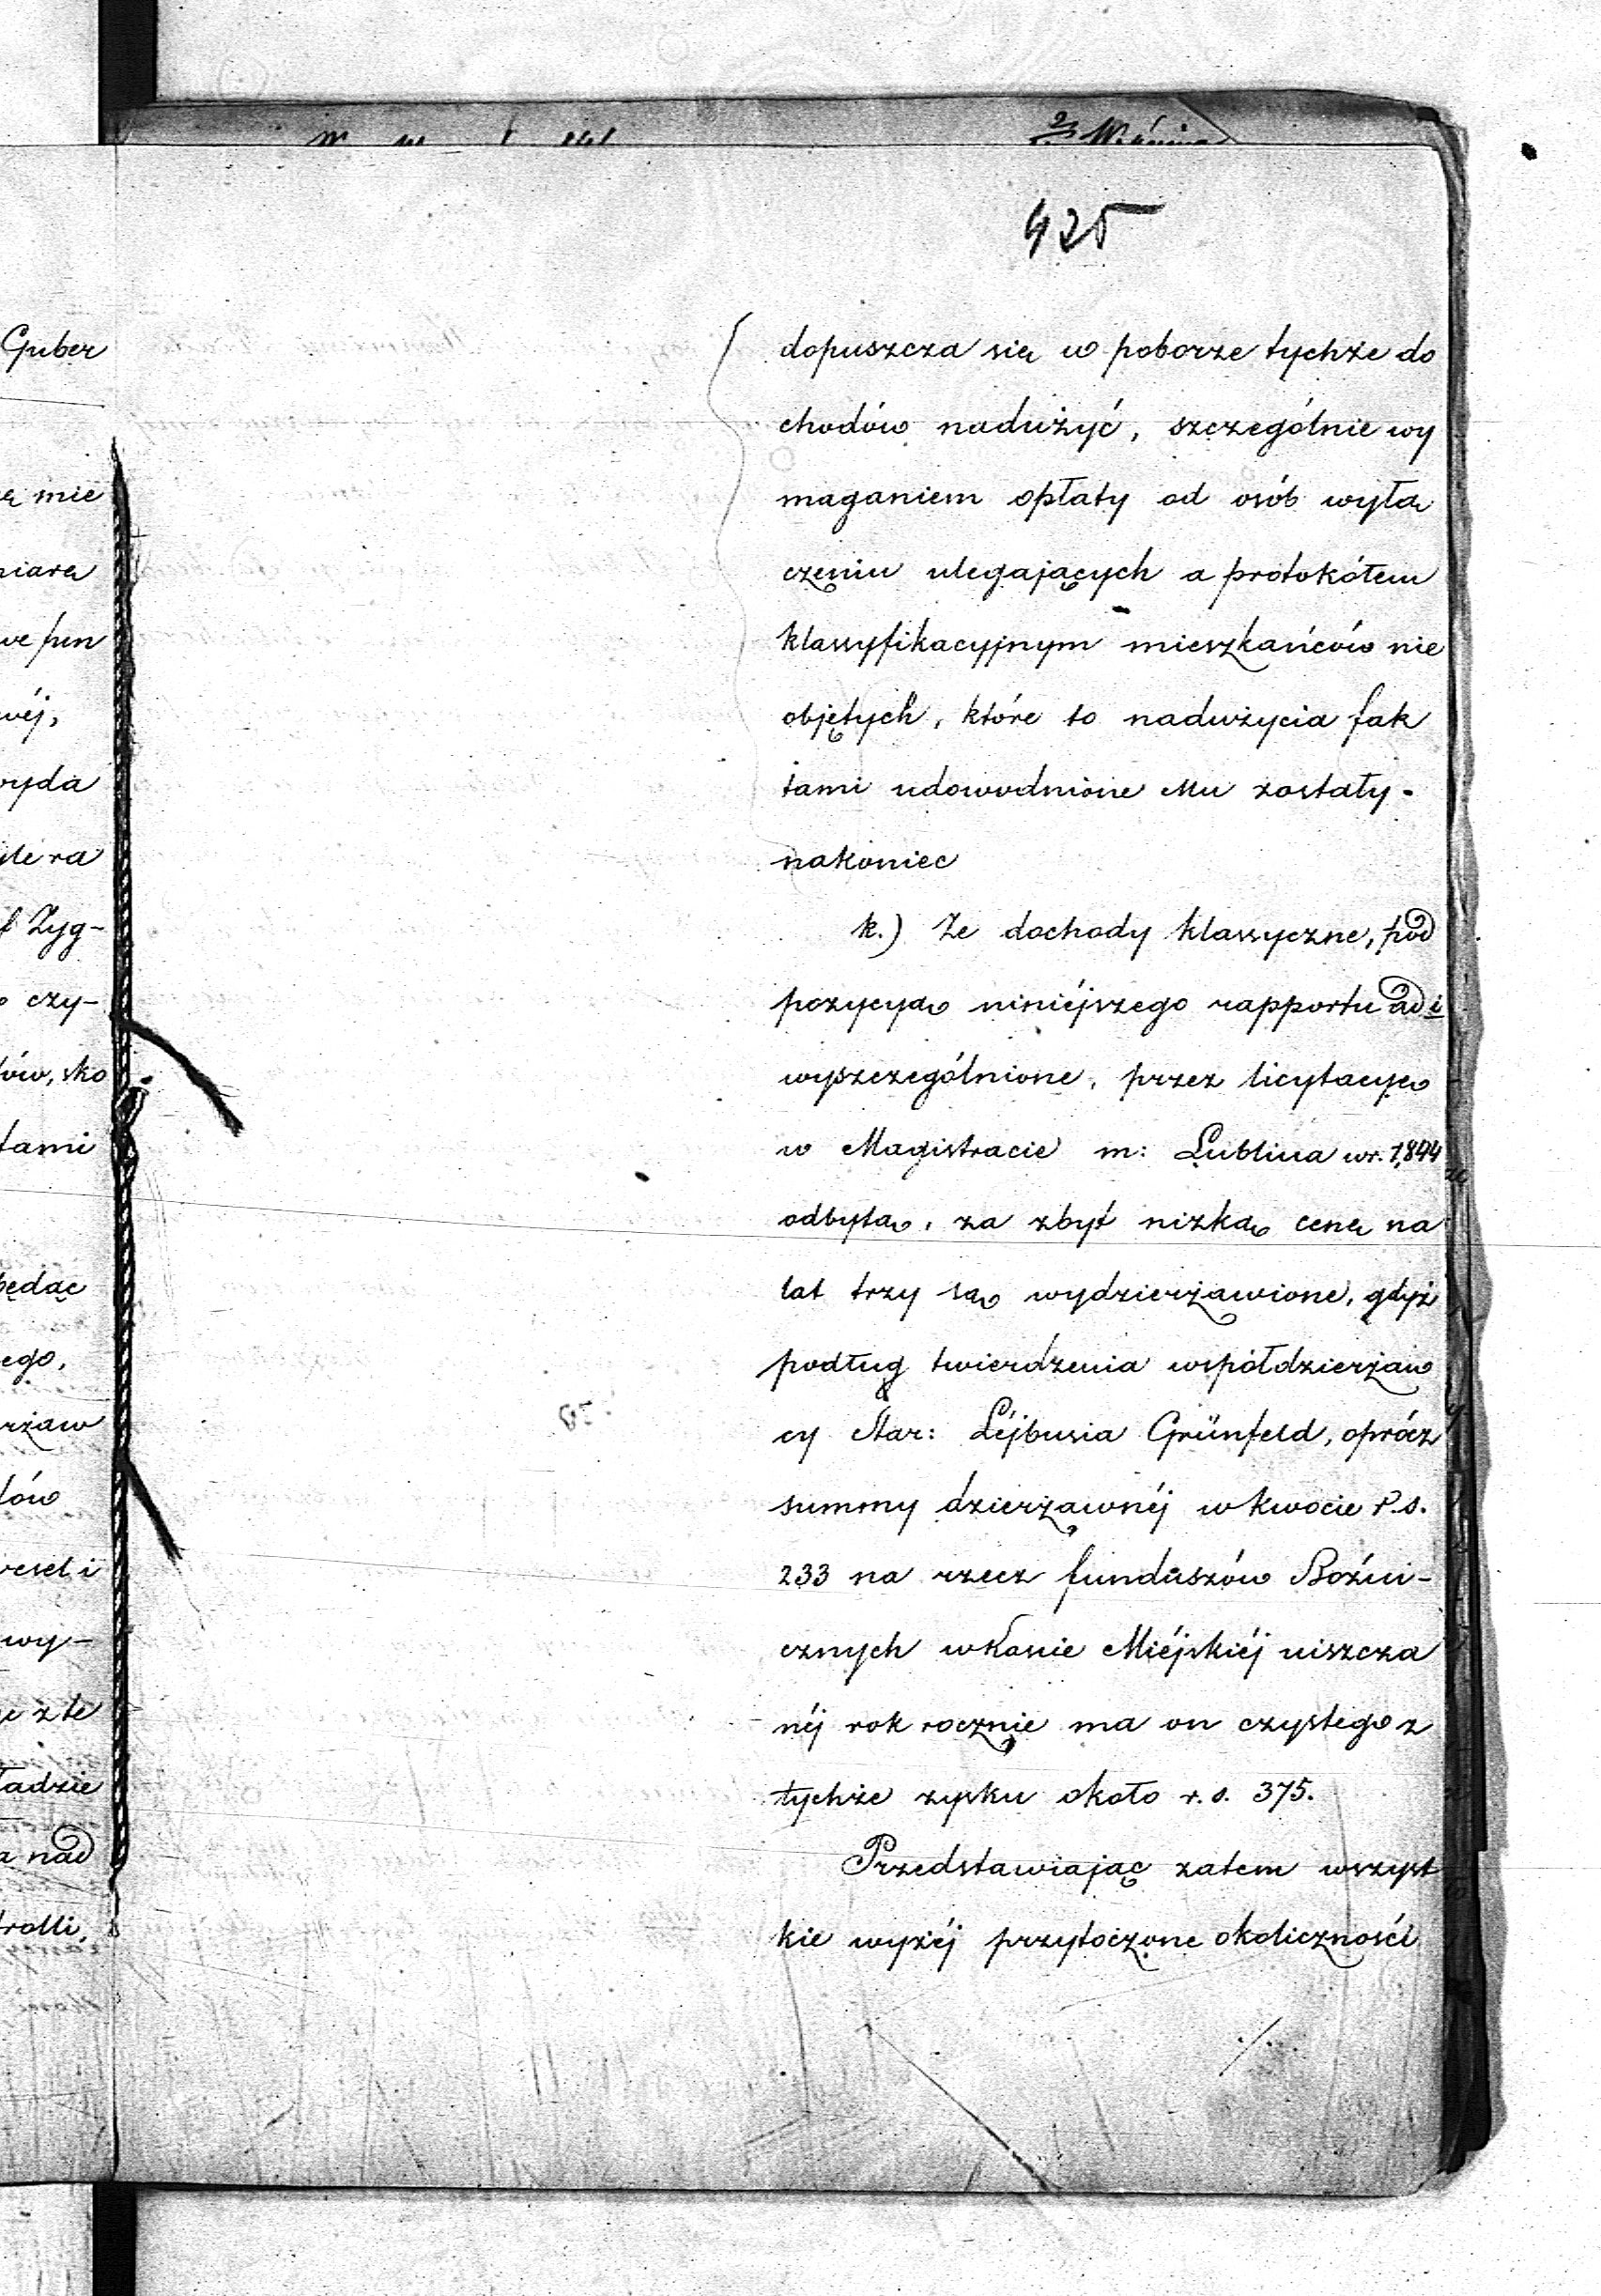 425
dopuszcza się w poborze tychże do
chodów nadużyć, szczególnie wy
maganiem opłaty od osób wyłą
czeniu ulegających a protokółem
klassyfikacyjnym mieszkańców nie
objętych, które to nadużycia fak
tami udowodnione Mu zostały.
nakoniec
k.) Że dochody klassyczne, pod
pozycyą niniéjszego rapportu ad i
wyszczególnione, przez licytacyę
w Magistracie m: Lublina w r. 1,844
odbytą, za zbyt nizką cenę na
lat trzy są wydzierżawione, gdyż
podług twierdzenia współdzierżaw
cy Star: Léjbusia Grünfeld, oprócz
summy dzierżawnéj w kwocie r.s.
233 na rzecz funduszów Bożni-
cznych w Kasie Miéjskiéj uiszcza
néj rok rocznie ma on czystego z
tychże zysku około r.s. 375.
Przedstawiając zatem wszyst
kie wyżéj przytoczone okoliczności
./.
Guber
mie
wéj,
wyda
Zyg-
czy-
sko
tami
będąc
ego,
wy-
nad